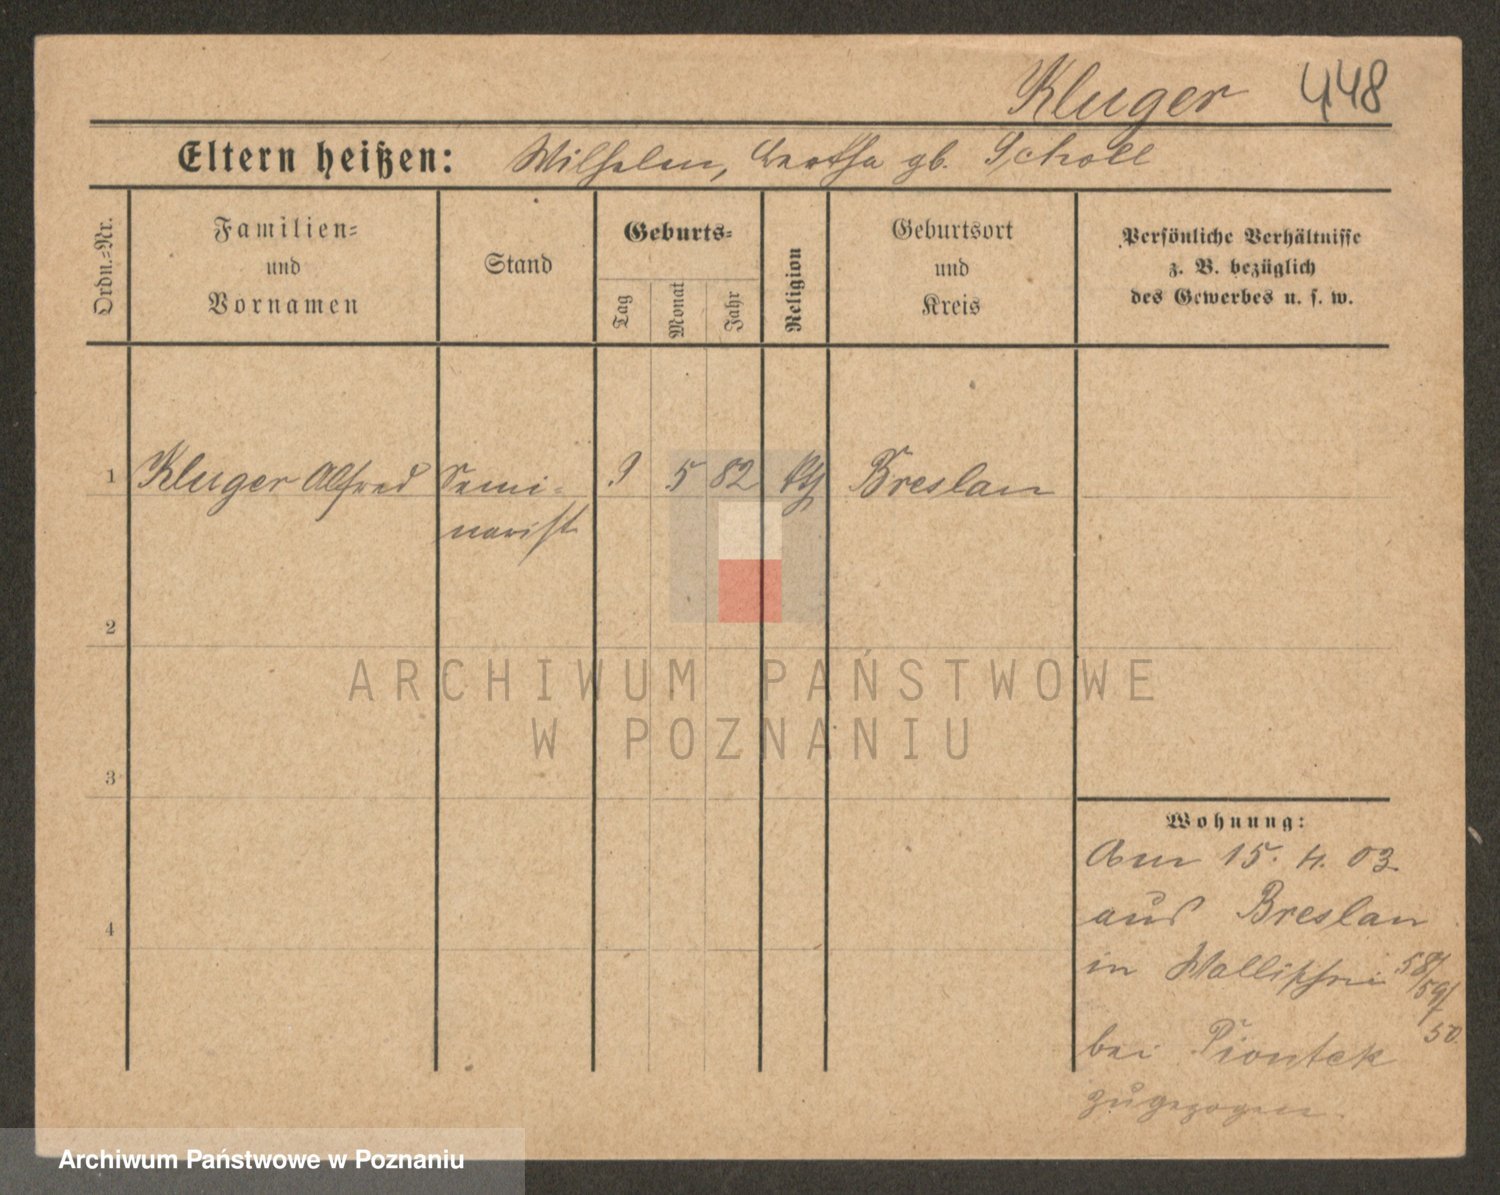 Kluger 448
Eltern heißen: Wilhelm, Bertha gb. Scholl
Ordn.-Nr.
Familien-
und
Vornamen
Stand
Geburts-
Tag
Monat
Jahr
Religion
Geburtsort
und
Kreis
Persönliche Verhältnisse
z. B. bezüglich
des Gewerbes u. s. w.
1 Kluger Alfred Semi- 9 5 82 kth Breslau
narist
2
3
4
Wohnung:
Am 15. 4. 03
aus Breslau
in Wallischei 58/
59/
50
bei Piontek
zugezogen.
ARCHIWUM PAŃSTWOWE
W POZNANIU
Archiwum Państwowe w Poznaniu